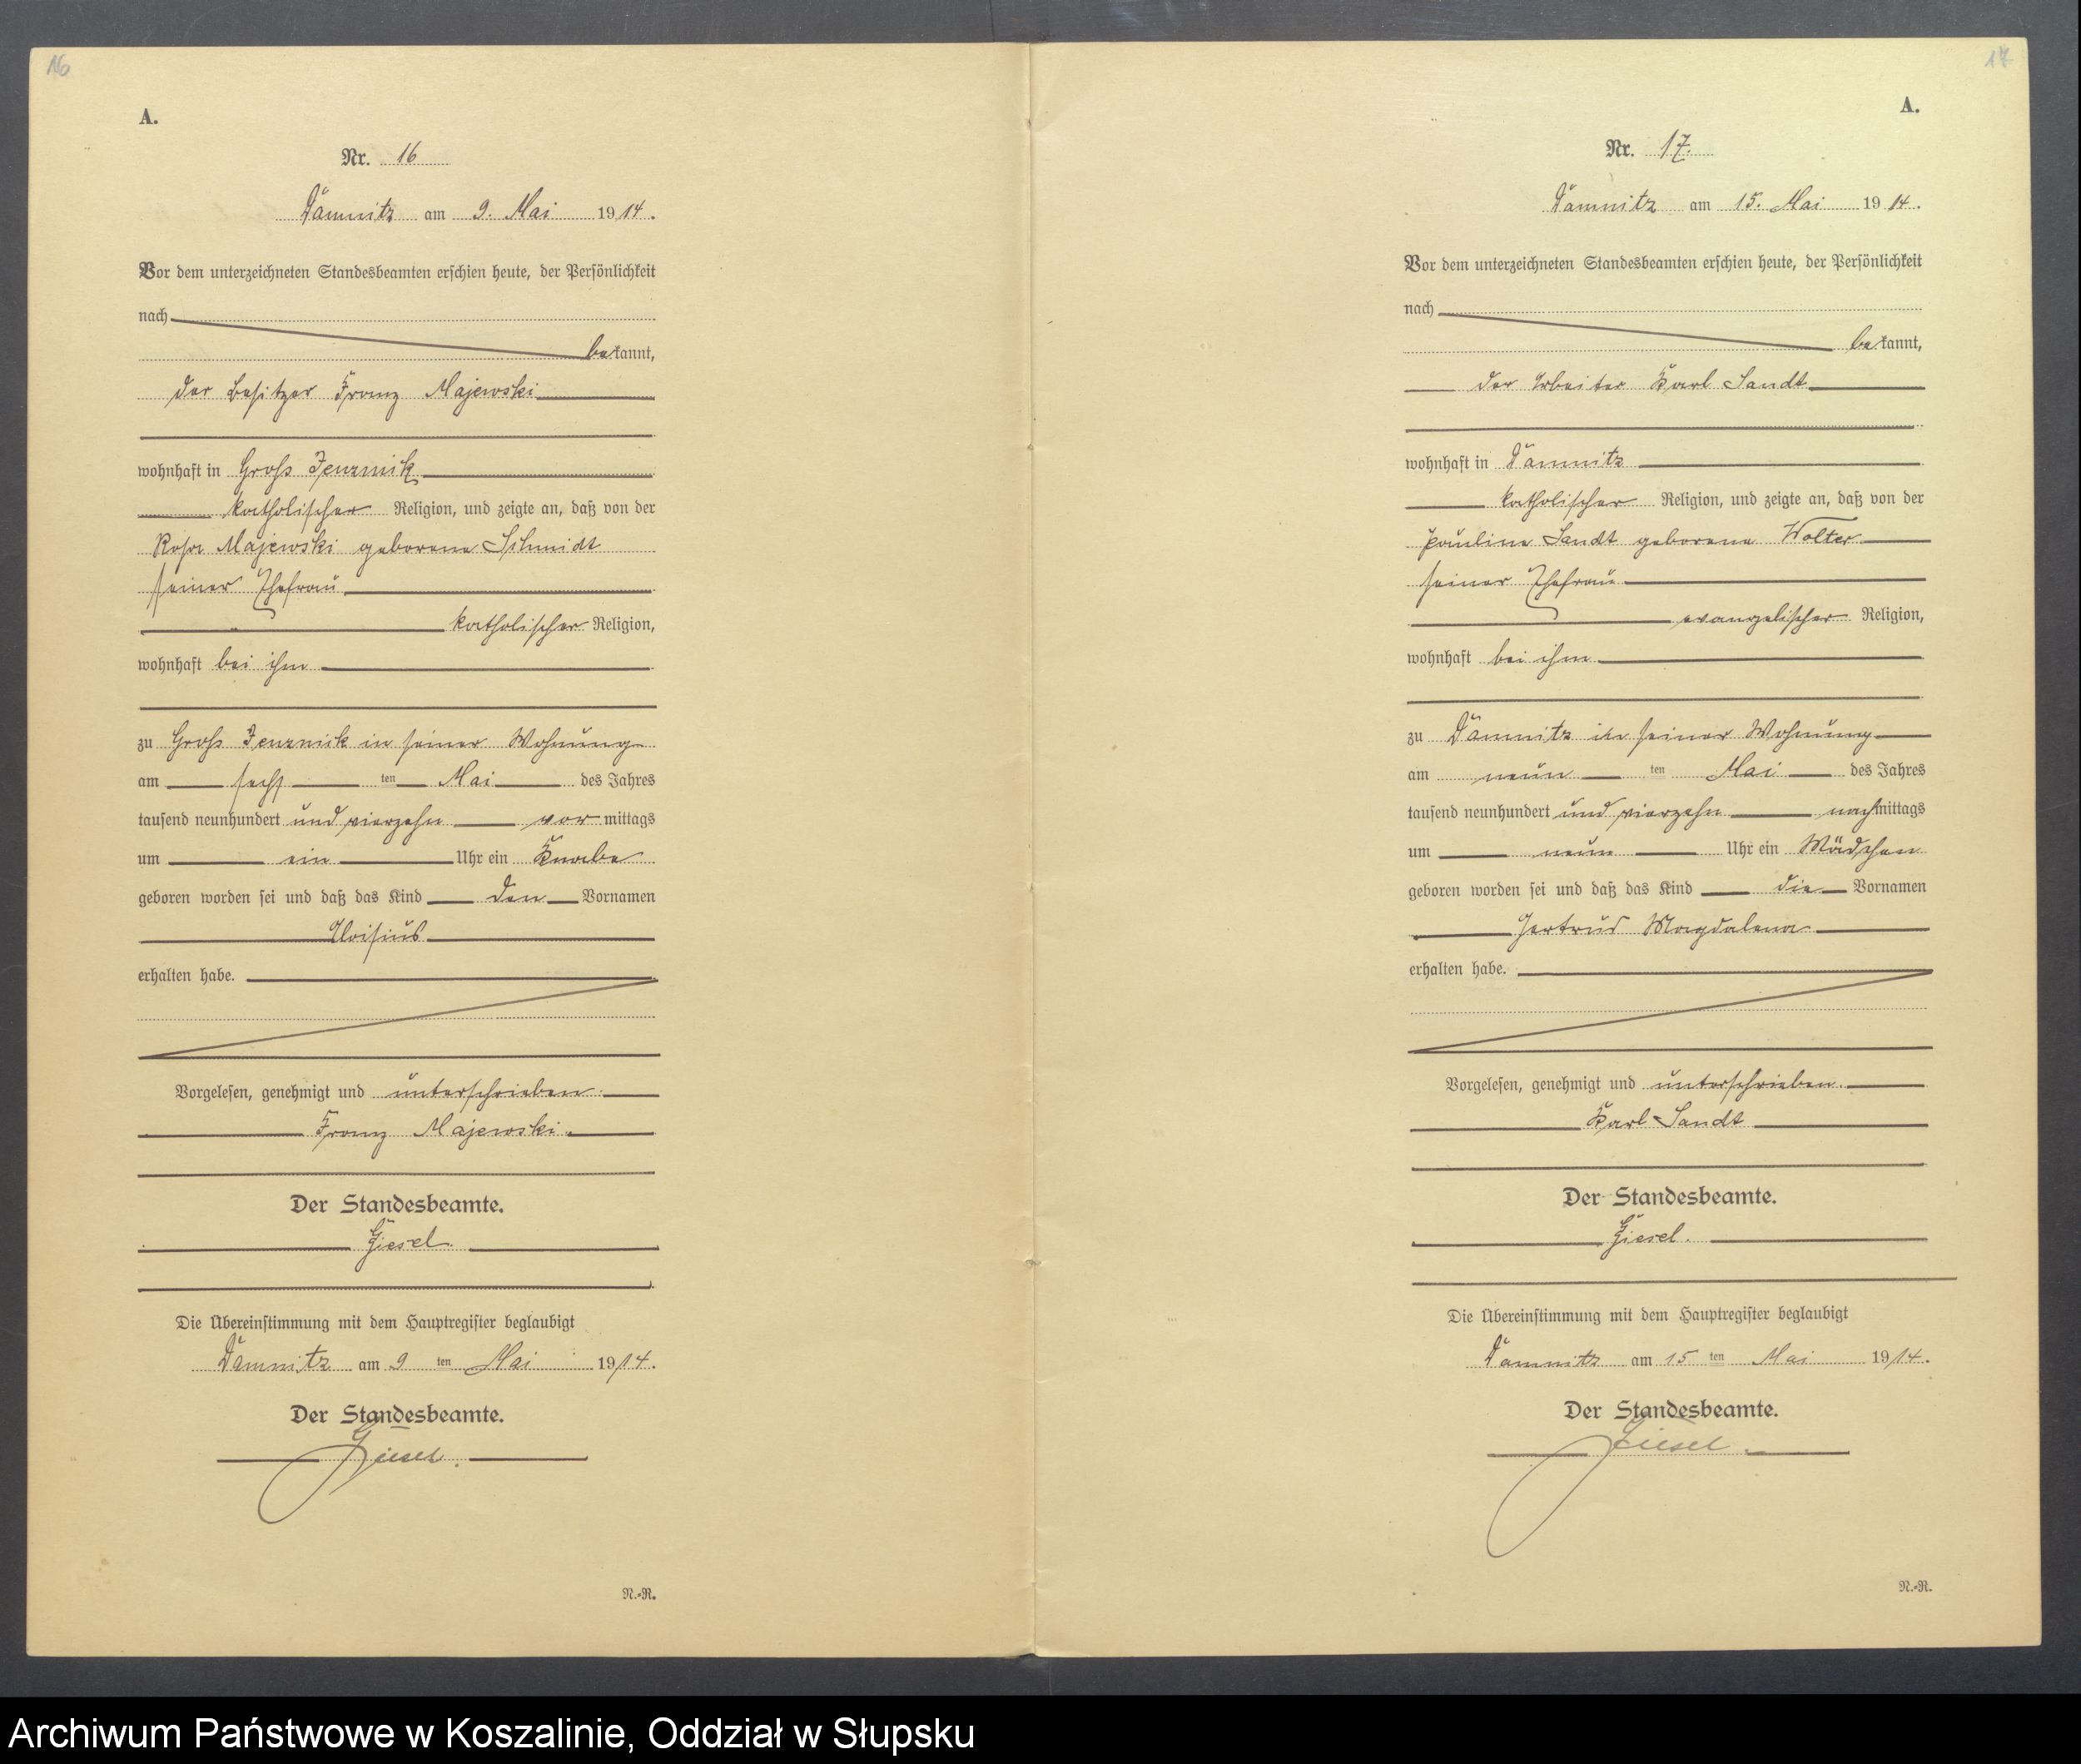 16
A.
Nr. 16
Damnitz am 9. Mai 1914.
Vor dem unterzeichneten Standesbeamten erschien heute, der Persönlichkeit
nach
bekannt,
der Besitzer Franz Majewski
wohnhaft in Groß Jenznik
katholischer Religion, und zeigte an, daß von der
Rosa Majewski geborene Schmidt
seiner Ehefrau
katholischer Religion,
wohnhaft bei ihm
zu Groß Jenznick in seiner Wohnung
am sechs ten Mai des Jahres
tausend neunhundert und vierzehn vor mittags
um ein Uhr ein Knabe
geboren worden sei und daß das Kind den Vornamen
Aloisius
erhalten habe.
Vorgelesen, genehmigt und unterschrieben.
Franz Majewski.
Der Standesbeamte.
Giesel.
Die Übereinstimmung mit dem Hauptregister beglaubigt
Damnitz am 9 ten Mai 1914.
Der Standesbeamte.
Giesel.
N.=R.
17
A.
Nr. 17.
Damnitz am 15. Mai 1914.
Vor dem unterzeichneten Standesbeamten erschien heute, der Persönlichkeit
nach
bekannt,
der Arbeiter Karl Sandt
wohnhaft in Damnitz
katholischer Religion, und zeigte an, daß von der
Pauline Sandt geborene Wolter
seiner Ehefrau
evangelischer Religion,
wohnhaft bei ihm
zu Damnitz in seiner Wohnung
am neun ten Mai des Jahres
tausend neunhundert und vierzehn nachmittags
um neun Uhr ein Mädchen
geboren worden sei und daß das Kind die Vornamen
Gertrud Magdalena
erhalten habe.
Vorgelesen, genehmigt und unterschrieben.
Karl Sandt
Der Standesbeamte.
Giesel.
Die Übereinstimmung mit dem Hauptregister beglaubigt
Damnitz am 15 ten Mai 1914.
Der Standesbeamte.
Giesel.
N.=R.
Archiwum Państwowe w Koszalinie, Oddział w Słupsku